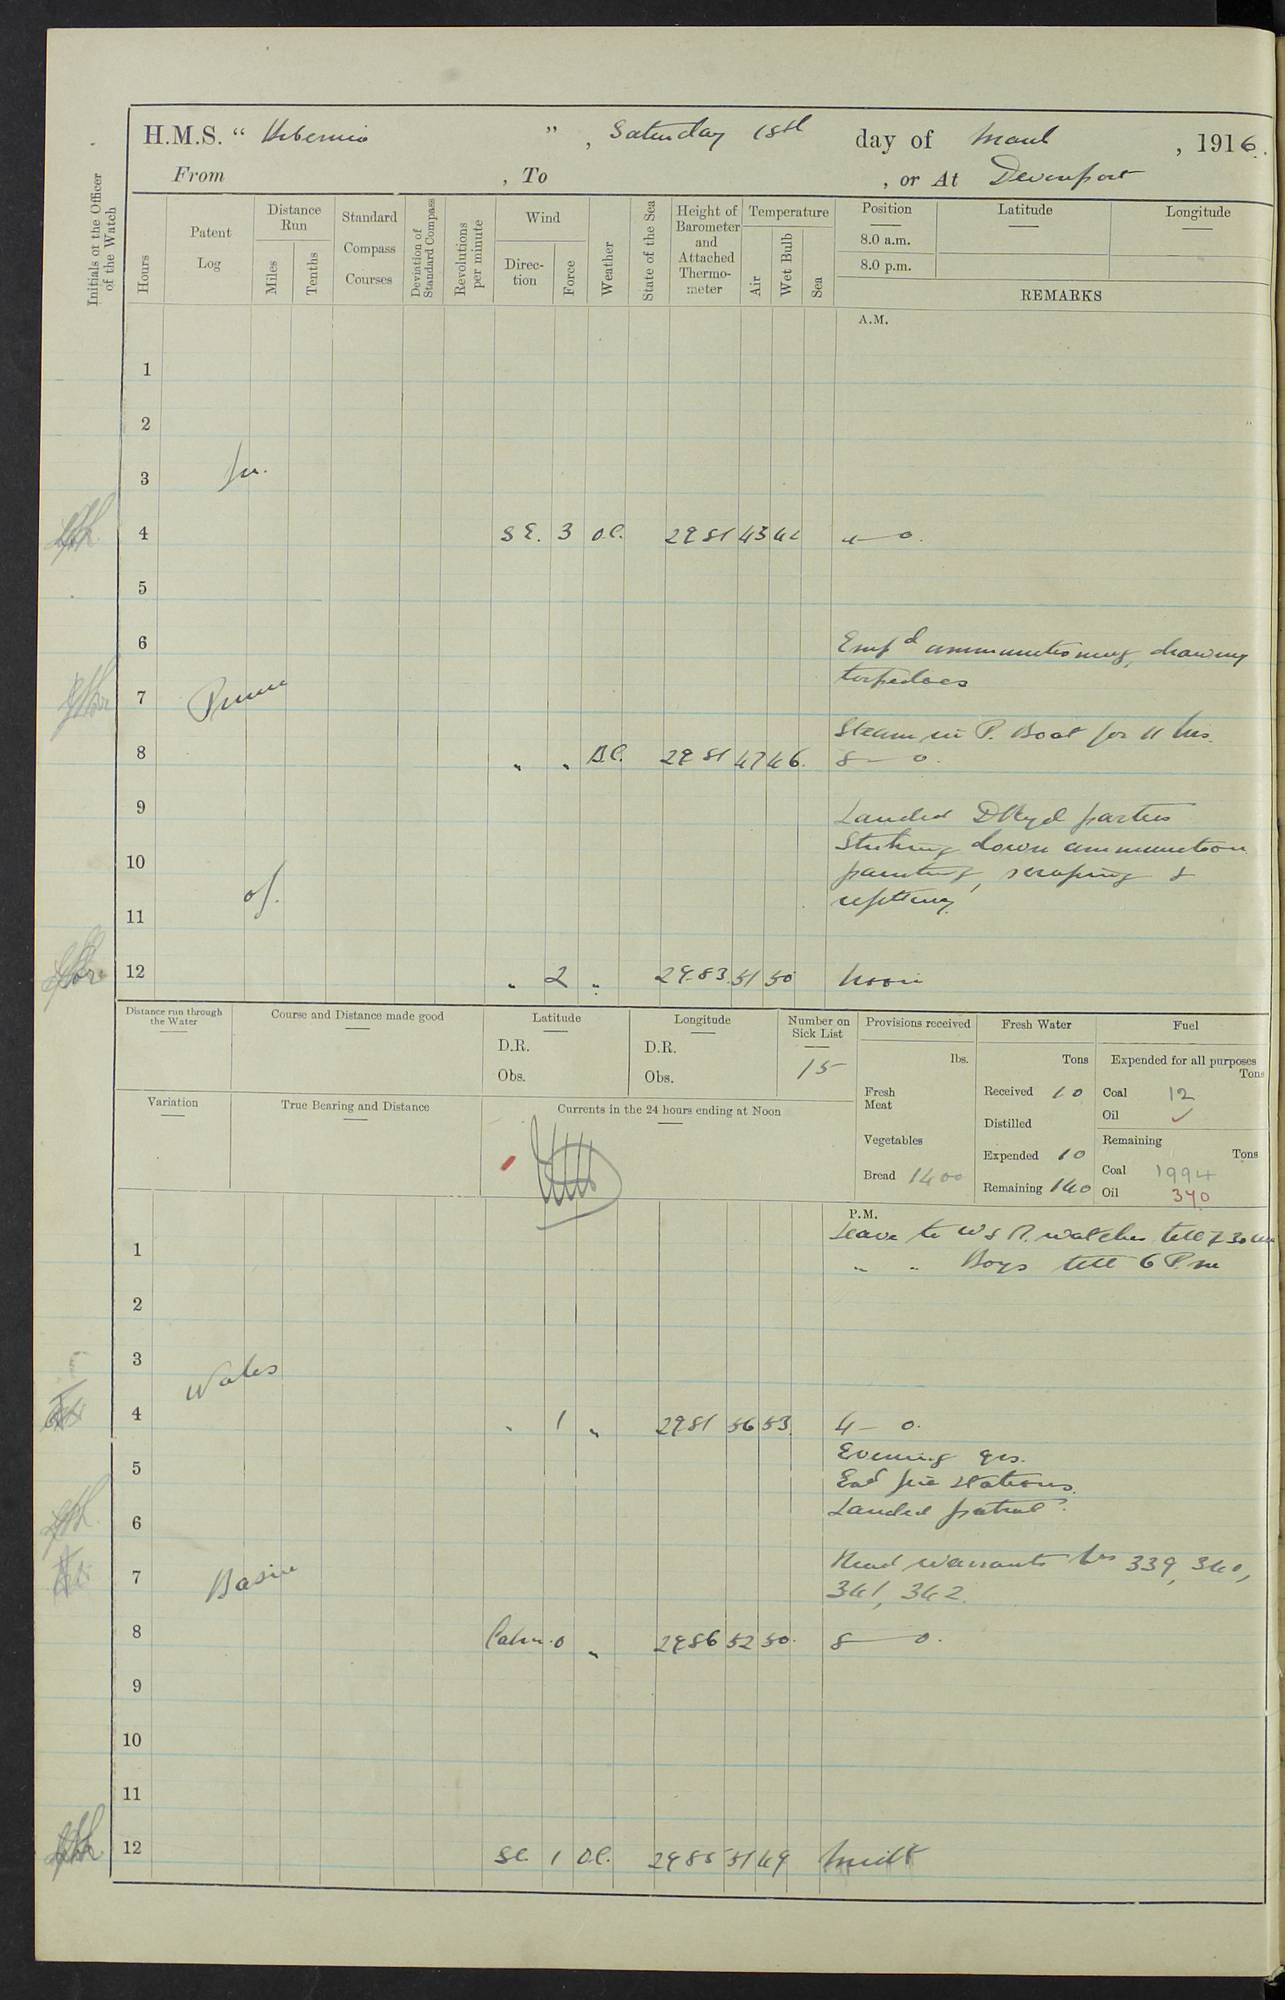 H.M.S. “ Hibernia ”, Saturday 18th day of March, 1916.
From , To , or At Devonport
Initials of the Officer of the Watch
Hours
Patent Log
Distance Run
Miles
Tenths
Standard Compass Courses
Deviation of Standard Compass
Revolutions per minute
Wind
Direction
Force
Weather
State of the Sea
Height of Barometer and Attached Thermometer
Temperature
Air
Wet Bulb
Sea
Position
8.0 a.m.
8.0 p.m.
Latitude
Longitude
REMARKS
A.M.
1
2
3 In
4 S E. 3 O.C. 29 81 43 42 4 — 0.
5
6 Empd ammunitioning, drawing
torpedoes
7 Prince
Steam in P. Boat for 11 hrs.
8 " " B.C. 29 81 47 46. 8 — 0.
9 Landed DKyd parties
Striking down ammunition
10 painting, scraping &
of
refitting
11
12 " 2 " 29.83 51 50 Noon
Distance run through the Water
Course and Distance made good
Latitude
D.R.
Obs.
Longitude
D.R.
Obs.
Number on Sick List
15
Provisions received
lbs.
Fresh Meat
Vegetables
Bread 1400
Fresh Water
Tons
Received 10
Distilled
Expended 10
Remaining 140
Fuel
Expended for all purposes
Tons
Coal 12
Oil ✓
Remaining
Tons
Coal 1994
Oil 390
Variation
True Bearing and Distance
Currents in the 24 hours ending at Noon
P.M.
Leave to W & R. watches till 7 30 am
1 " " Boys till 6 P.m
2
3 Wales
4 " 1 " 29 81 56 53. 4 — 0.
Evening qrs.
5 Exd fire stations.
Landed patrol.
6
Read warrants Nos 339, 340,
7 Basin 341, 342.
8 Calm 0 " 29 86 52 50. 8 — 0.
9
10
11
12 SE. 1 O.C. 29 85 51 49 Midt